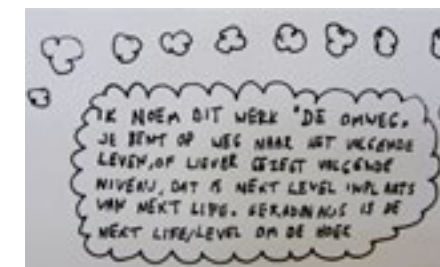 IK NOEM DIT WERK "DE OMWEG.
JE BENT OP WEG NAAR HET VOLGENDE
LEVEN, OF LIEVER GEZEGT VOLGENDE
NIVEAU, DAT IS NEXT LEVEL INPLAATS
VAN NEXT LIFE. IS DE
NEXT LIFE/LEVEL OM DE HOEK